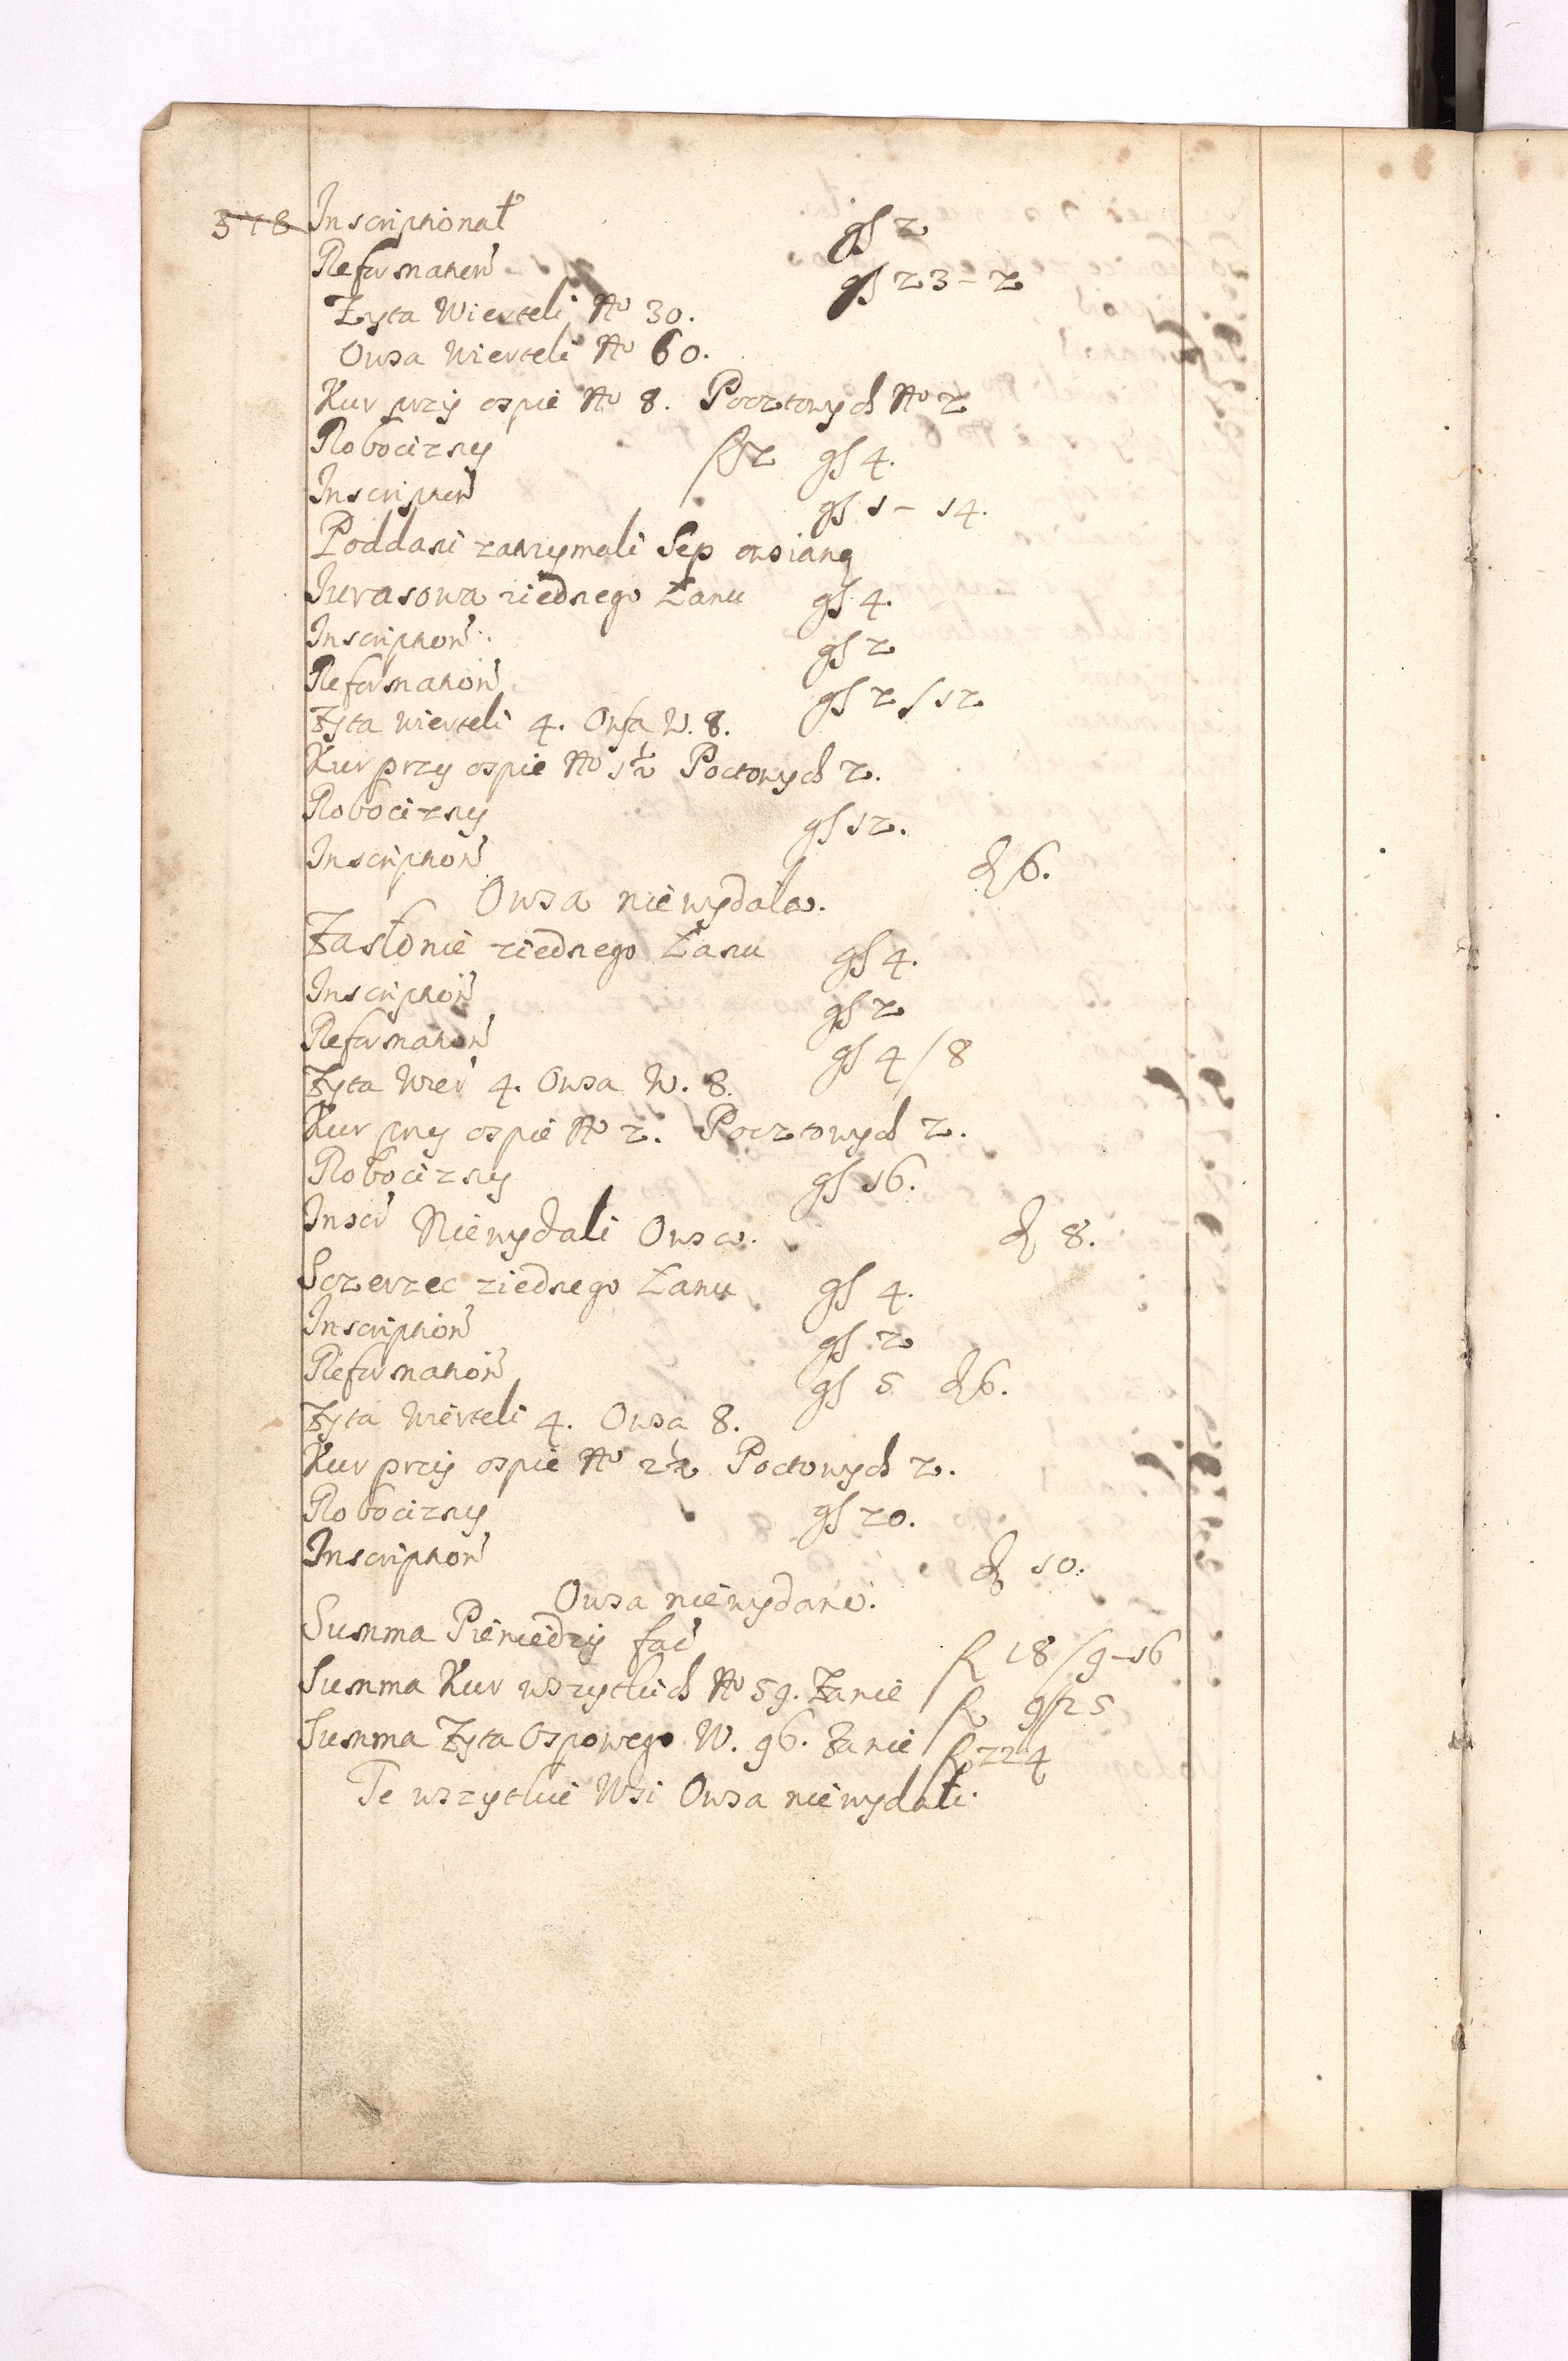 378 Inscriptionał gs 2
Reformationem gs 23 - 2
Zyta Wierteli No 30.
Owsa Wierteli No 60.
Kur przÿ ospie No 8. Pocztowych No 2
Robocizny fl 2 gs 4.
Inscription gs 1 - 14.
Poddani zatrzymali Sep owsianą
Jurasowa ziednego Łanu gs 4.
Inscription gs 2
Reformation gs 2 / 12
Zyta wierteli 4. Owsa W. 8.
Kur przy ospie No 1½ Poctowych 2.
Robocizny gs 12.
Inscription d 6.
Owsa niewydala.
Zasłonie ziednego Łanu gs 4.
Inscription gs 2
Reformation gs 4 / 8
Zyta Wier 4. Owsa W. 8.
Kur przy ospie No 2. Pocztowych 2.
Robocizny gs 16.
Inscr Niewydali Owsa. d 8.
Sczerzec ziednego Łanu gs 4.
Inscription gs 2
Reformation gs 5 d 6.
Zyta Wierteli 4. Owsa 8.
Kur przÿ ospie No 2½ Poctowych 2.
Robocizny gs 20.
Inscription d 10.
Owsa niewydano.
Summa Pieniedzÿ fac fl 18 / 9 - 16
Summa Kur wszytkich No 59. Zanie fl 9 / 25
Summa Zyta Ospowego W. 96. Zanie fl 224
Te wszytkie Wsi Owsa niewydałi.